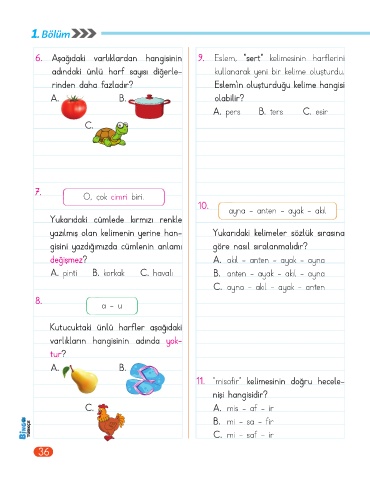 1. Bölüm
6. Aşağıdaki varlıklardan hangisinin
adındaki ünlü harf sayısı diğerle-
rinden daha fazladır?
A.
B.
C.
7.
O, çok cimri biri.
Yukarıdaki cümlede kırmızı renkle
yazılmış olan kelimenin yerine han-
gisini yazdığımızda cümlenin anlamı
değişmez?
A. pinti B. korkak C. havalı
8.
a - u
Kutucuktaki ünlü harfler aşağıdaki
varlıkların hangisinin adında yok-
tur?
A.
B.
C.
BİNGO
TÜRKÇE
36
9. Eslem, "sert" kelimesinin harflerini
kullanarak yeni bir kelime oluşturdu.
Eslem'in oluşturduğu kelime hangisi
olabilir?
A. pers B. ters C. esir
10.
ayna - anten - ayak - akıl
Yukarıdaki kelimeler sözlük sırasına
göre nasıl sıralanmalıdır?
A. akıl - anten - ayak - ayna
B. anten - ayak - akıl - ayna
C. ayna - akıl - ayak - anten
11. "misafir" kelimesinin doğru hecele-
nişi hangisidir?
A. mis - af - ir
B. mi - sa - fir
C. mi - saf - ir